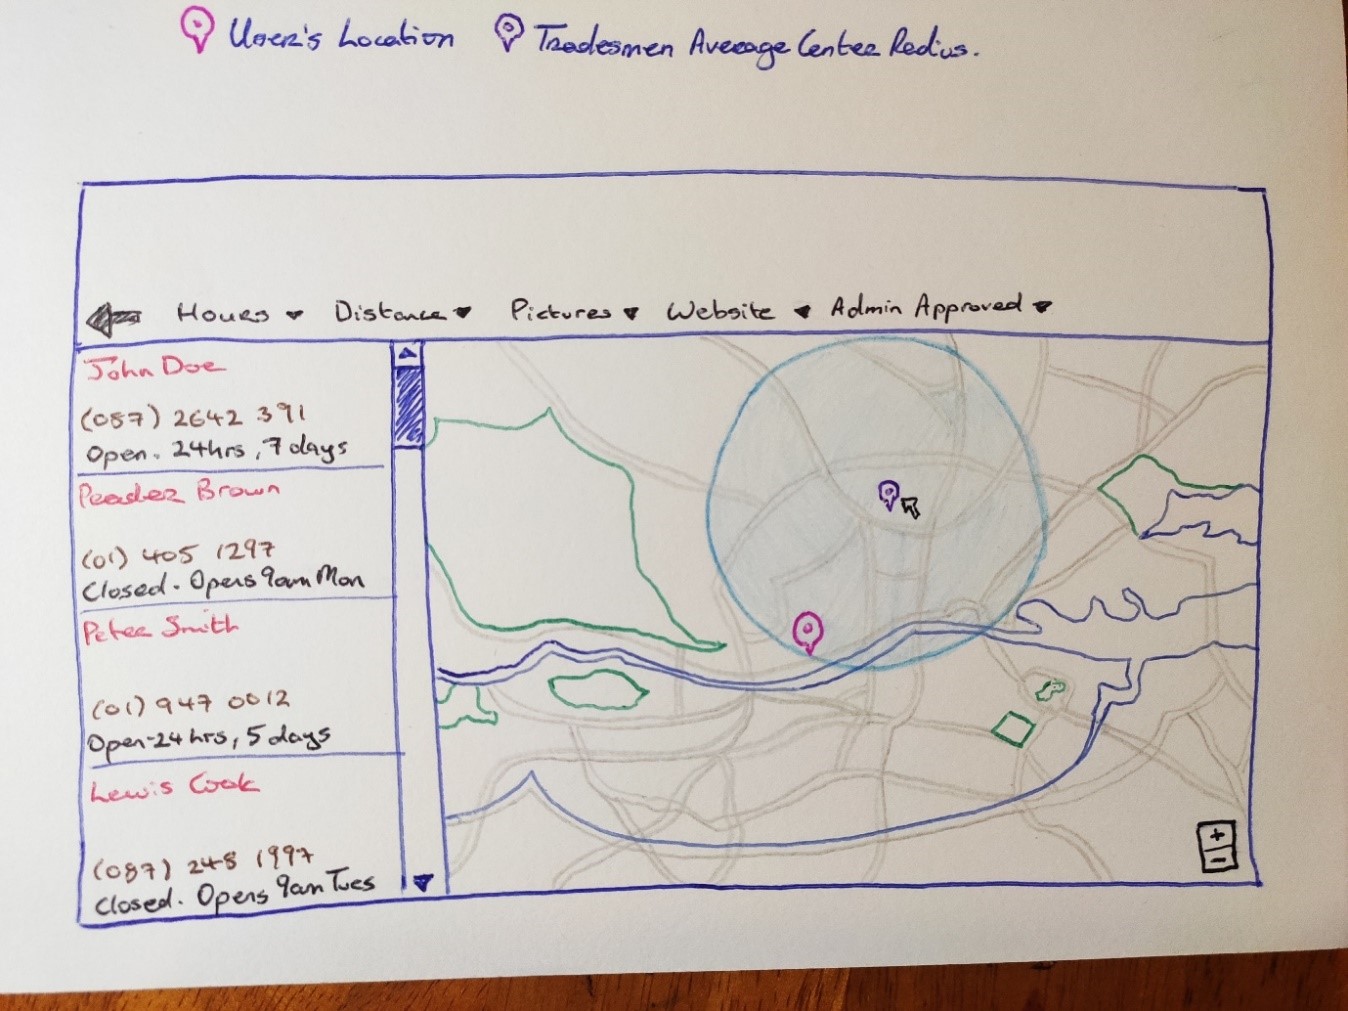 User's Location
Tradesmen Average Center Radius.
Hours Distance Pictures Website Admin Approved
John Doe
(087) 2642 391
Open. 24hrs, 7 days
Peadar Brown
(01) 405 1297
Closed. Opens 9am Mon
Peter Smith
(01) 947 0012
Open-24 hrs, 5 days
Lewis Cook
(087) 248 1997
Closed. Opens 9am Tues
+
-